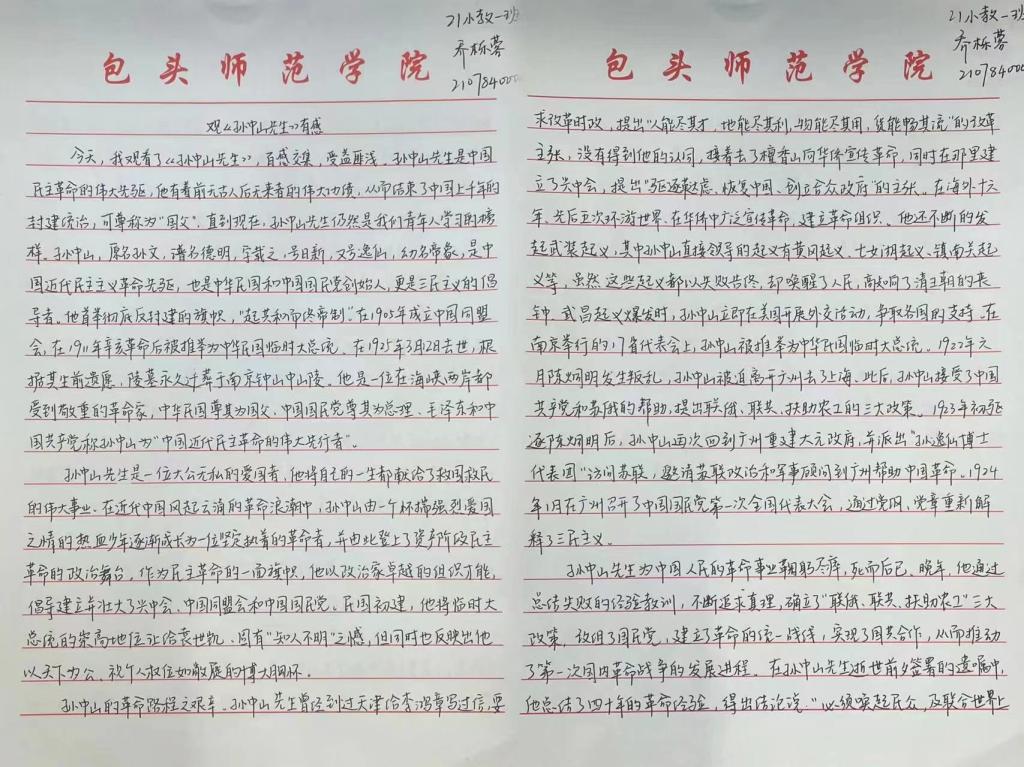 21小教一班
乔栎蓉
210784000
包头师范学院
观《孙中山先生》有感
今天，我观看了《孙中山先生》，百感交集，受益匪浅。孙中山先生是中国
民主革命的伟大先驱，他有着前无古人后无来者的伟大功绩，从而结束了中国上千年的
封建统治，可尊称为"国父"。直到现在，孙中山先生仍然是我们青年人学习的榜
样。孙中山，原名孙文，谱名德明，字载之，号日新，又号逸仙，幼名帝象，是中
国近代民主主义革命先驱，也是中华民国和中国国民党创始人，更是三民主义的倡
导者。他首举彻底反封建的旗帜，"起共和而终帝制"。在1905年成立中国同盟
会，在1911年辛亥革命后被推举为中华民国临时大总统。在1925年3月12日去世，根
据其生前遗愿，陵墓永久迁葬于南京钟山中山陵。他是一位在海峡两岸都
受到敬重的革命家，中华民国尊其为国父、中国国民党尊其为总理、毛泽东和中
国共产党称孙中山为"中国近代民主革命的伟大先行者"。
孙中山先生是一位大公无私的爱国者，他将自己的一生都献给了救国救民
的伟大事业。在近代中国风起云涌的革命浪潮中，孙中山由一个怀揣强烈爱国
之情的热血少年逐渐成长为一位坚定执着的革命者，并由此登上了资产阶级民主
革命的政治舞台，作为民主革命的一面旗帜，他以政治家卓越的组织才能，
倡导建立并壮大了兴中会、中国同盟会和中国国民党。民国初建，他将临时大
总统的崇高地位让给袁世凯，固有"知人不明"之憾，但同时也反映出他
以天下为公，视个人权位如敝屣的博大胸怀。
孙中山的革命路程之艰辛。孙中山先生曾经到过天津给李鸿章写过信，要
21小教一班
乔栎蓉
210784000
包头师范学院
求改革时政，提出"人能尽其才，地能尽其利，物能尽其用，货能畅其流"的改革
主张，没有得到他的认同，接着去了檀香山向华侨宣传革命，同时在那里建
立了兴中会，提出"驱逐鞑虏，恢复中国、创立合众政府"的主张。在海外十六
年、先后五次环游世界、在华侨中广泛宣传革命，建立革命组织。他还不断的发
起武装起义，其中孙中山直接领导的起义有黄冈起义、七女湖起义、镇南关起
义等，虽然这些起义都以失败告终，却唤醒了人民，高响了清王朝的丧
钟。武昌起义爆发时，孙中山立即在美国开展外交活动，争取各国的支持。在
南京举行的17省代表会上，孙中山被推举为中华民国临时大总统。1922年六
月陈炯明发生叛乱，孙中山被迫离开广州去了上海。此后，孙中山接受了中国
共产党和苏俄的帮助，提出联俄、联共、扶助农工的三大政策。1923年初驱
逐陈炯明后，孙中山再次回到广州重建大元政府，并派出"孙逸仙博士
代表团"访问苏联，邀请苏联政治和军事顾问到广州帮助中国革命。1924
年1月在广州召开了中国国民党第一次全国代表大会，通过党纲，党章重新解
释了三民主义。
孙中山先生为中国人民的革命事业鞠躬尽瘁，死而后已。晚年，他通过
总结失败的经验教训，不断追求真理，确立了"联俄、联共、扶助农工"三大
政策，改组了国民党，建立了革命的统一战线，实现了国共合作，从而推动
了第一次国内革命战争的发展进程。在孙中山先生逝世前夕签署的遗嘱中，
他总结了四十年的革命经验，得出结论说："必须唤起民众，及联合世界上